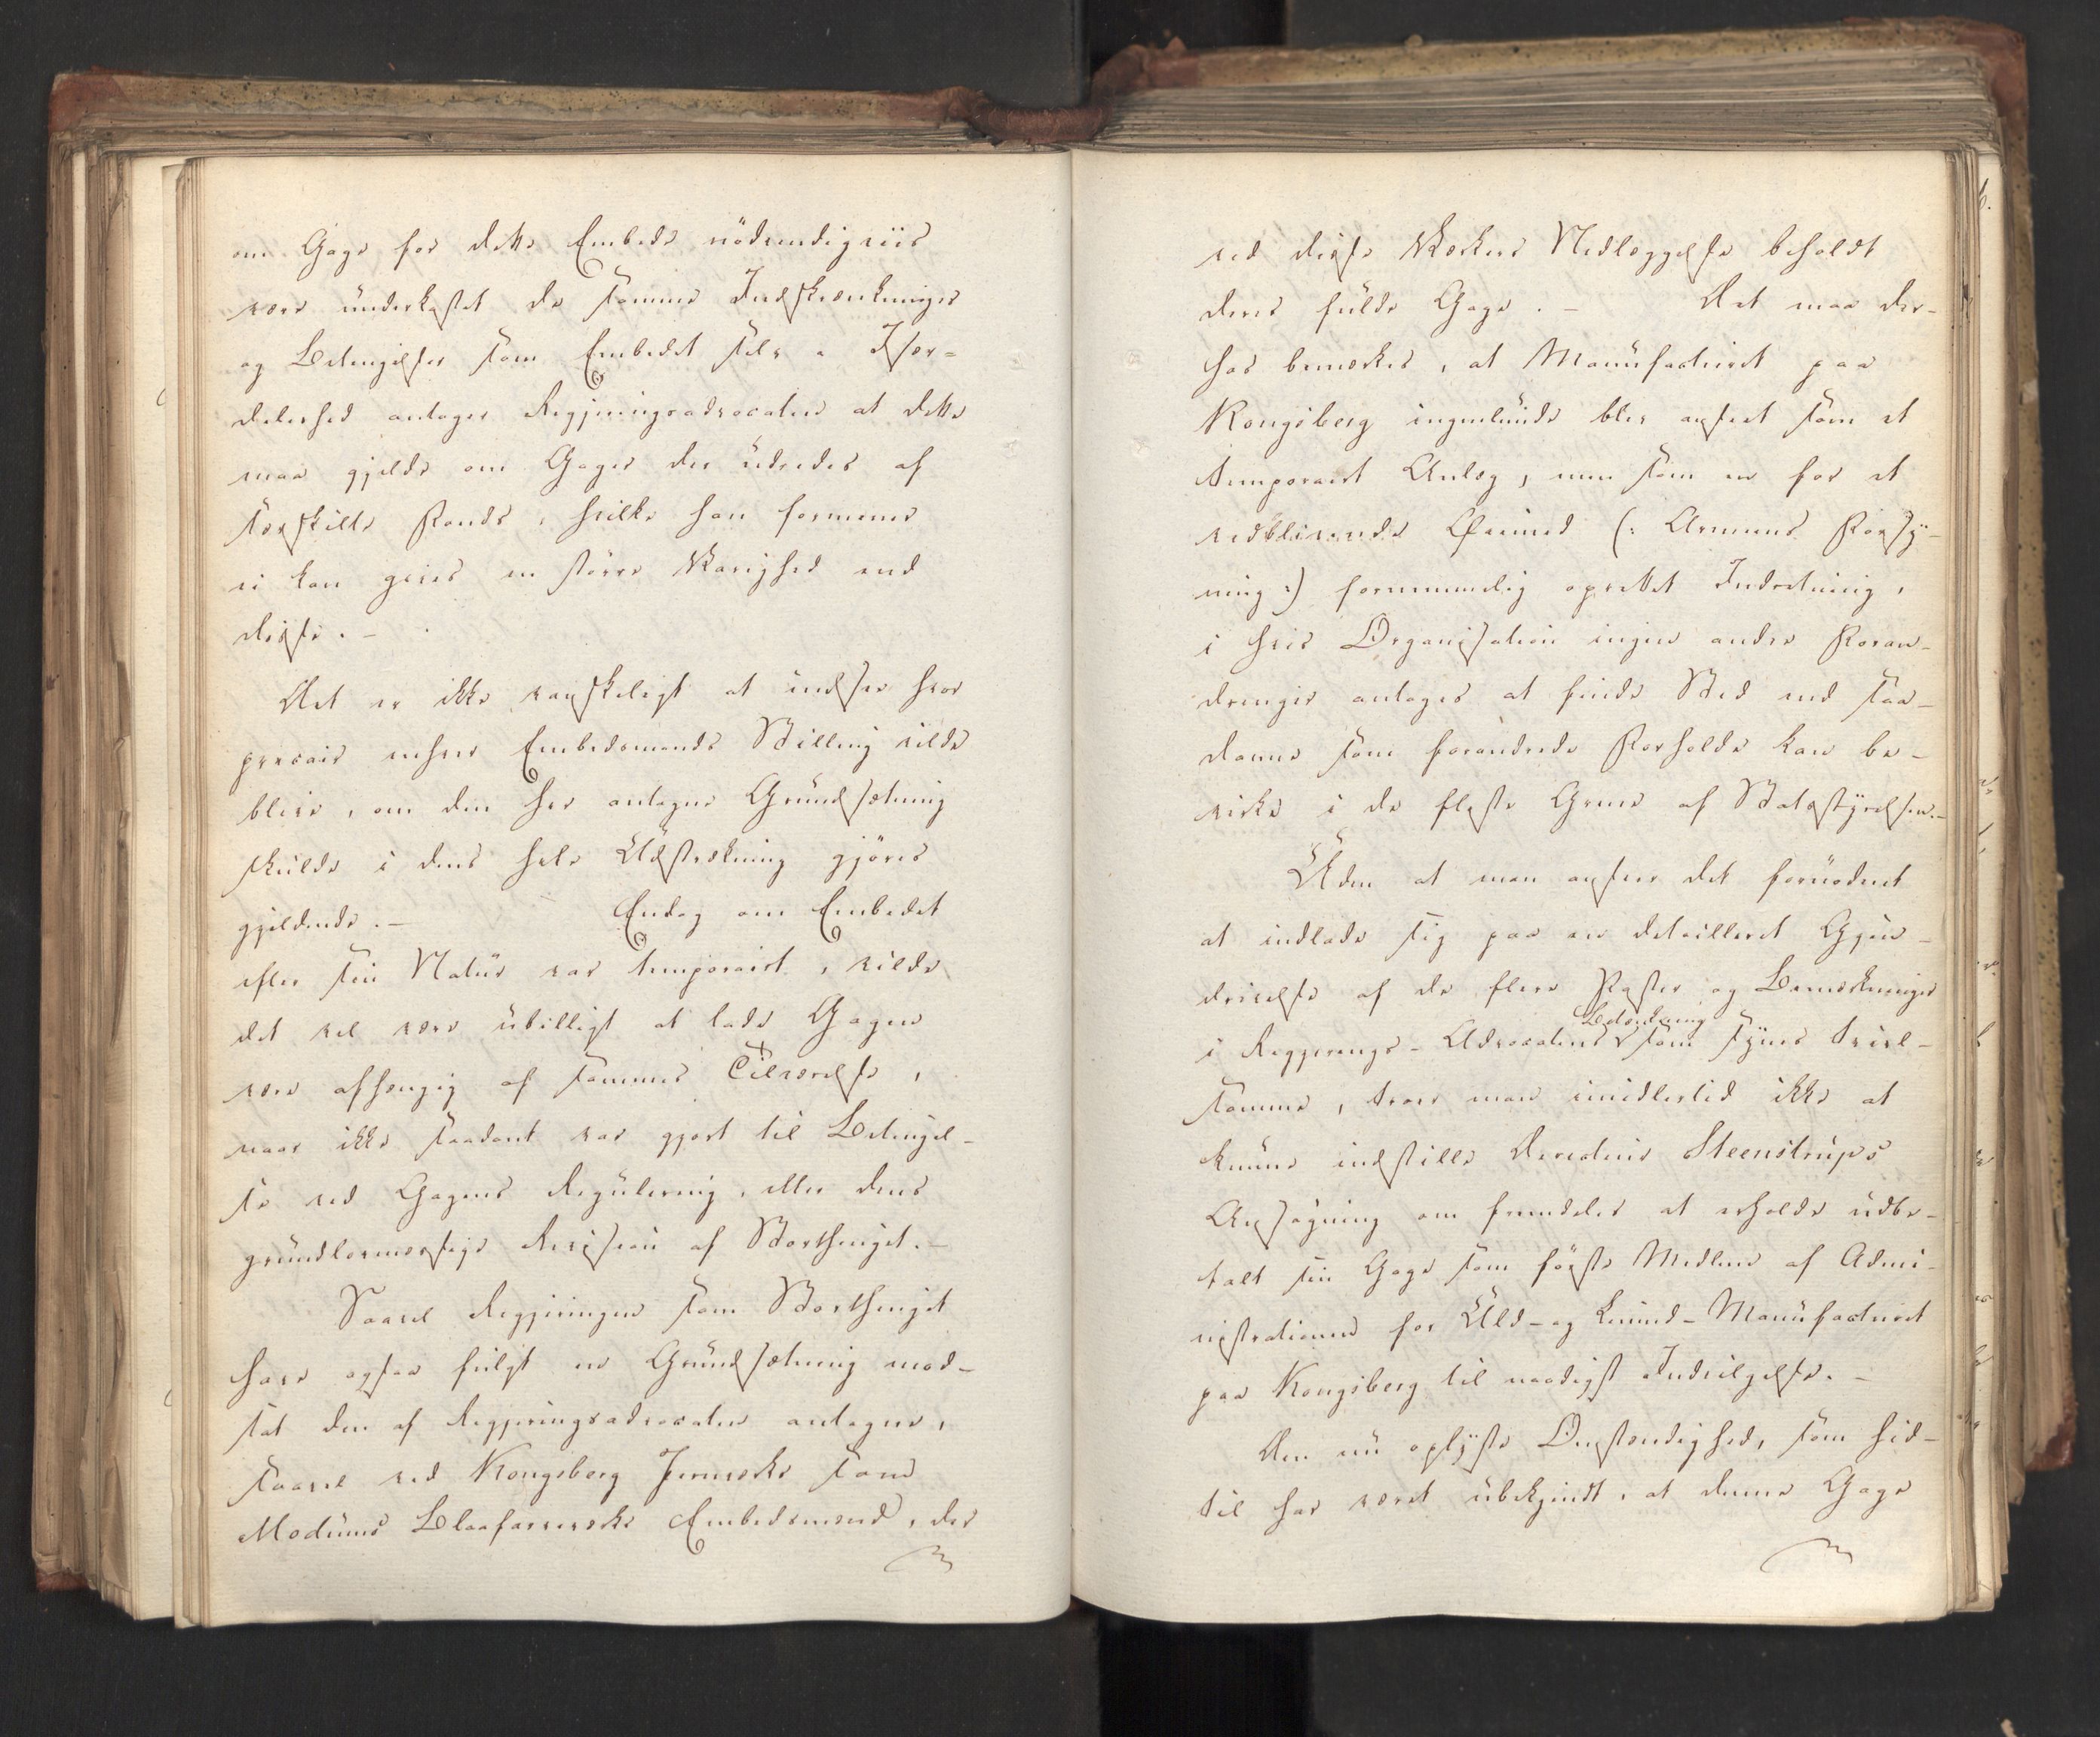 om Gage for dette Embede nödvendigviis
være underkastet de samme Indskrænkninger
og Betingelser som Embedet selv. Især-
deleshed antager Regjeringsadvocaten at dette
maa gjelde om Gager der udredes af
særskilte Fonds, hvilke han formener
ei kan gives en större Varighed end
disse. –
Det er ikke vanskeligt at indsee hvor
precair enhver Embedsmands Stilling vilde
blive, om den her antagne Grundsætning
skulde i dens hele Udstrækning gjöres
gjeldende. – Endog om Embedet
efter sin Natur var temporairt, vilde
det vel være ubilligt at lade Gagen
være afhængig af sammes Tilværelse,
naar ikke saadant var gjort til Betingel-
se ved Gagens Regulering, eller dens
grundlovmæssige Revision af Storthinget. –
Saavel Regjeringen som Storthinget
have ogsaa fulgt en Grundsætning mod-
sat den af Regjeringsadvocaten antagne,
saavel ved Kongsberg Jernværks som
Modums Blaafarveværks Embedsmænd, der
ved disse Værkers Nedlæggelse beholdt
deres fulde Gage. – Det maa der-
hos bemærkes, at Manufacturet paa
Kongsberg ingenlunde blev anseet som et
temporairt Anlæg, men som en for et
vedblivende Öiemed (: Armens Forsy-
ning :) formeenlig oprettet Indretning,
i hvis Organisation ingen andre Foran-
dringer antages at finde Sted end saa-
danne som forandrede Forholde kan be-
virke i de fleste Grene af Statsstyrelsen. –
Uden at man anseer det fornødent
at indlade sig paa en detailleret Gjen-
drivelse af de flere Poster og Bemærkninger
i Regjerings-Advocatens Betænkning som synes tvivl-
somme, troer man imidlertid ikke at
kunne indstille Directeur Steenstrups
Ansøgning om fremdeles at erholde udbe-
talt sin Gage som förste Medlem af Admi-
nistrationen for Uld- og Linned-Manufacturet
paa Kongsberg til naadigst Indvilgelse. –
Den nu oplyste Omstændighed, som hid-
til har været ubekjendt, at denne Gage